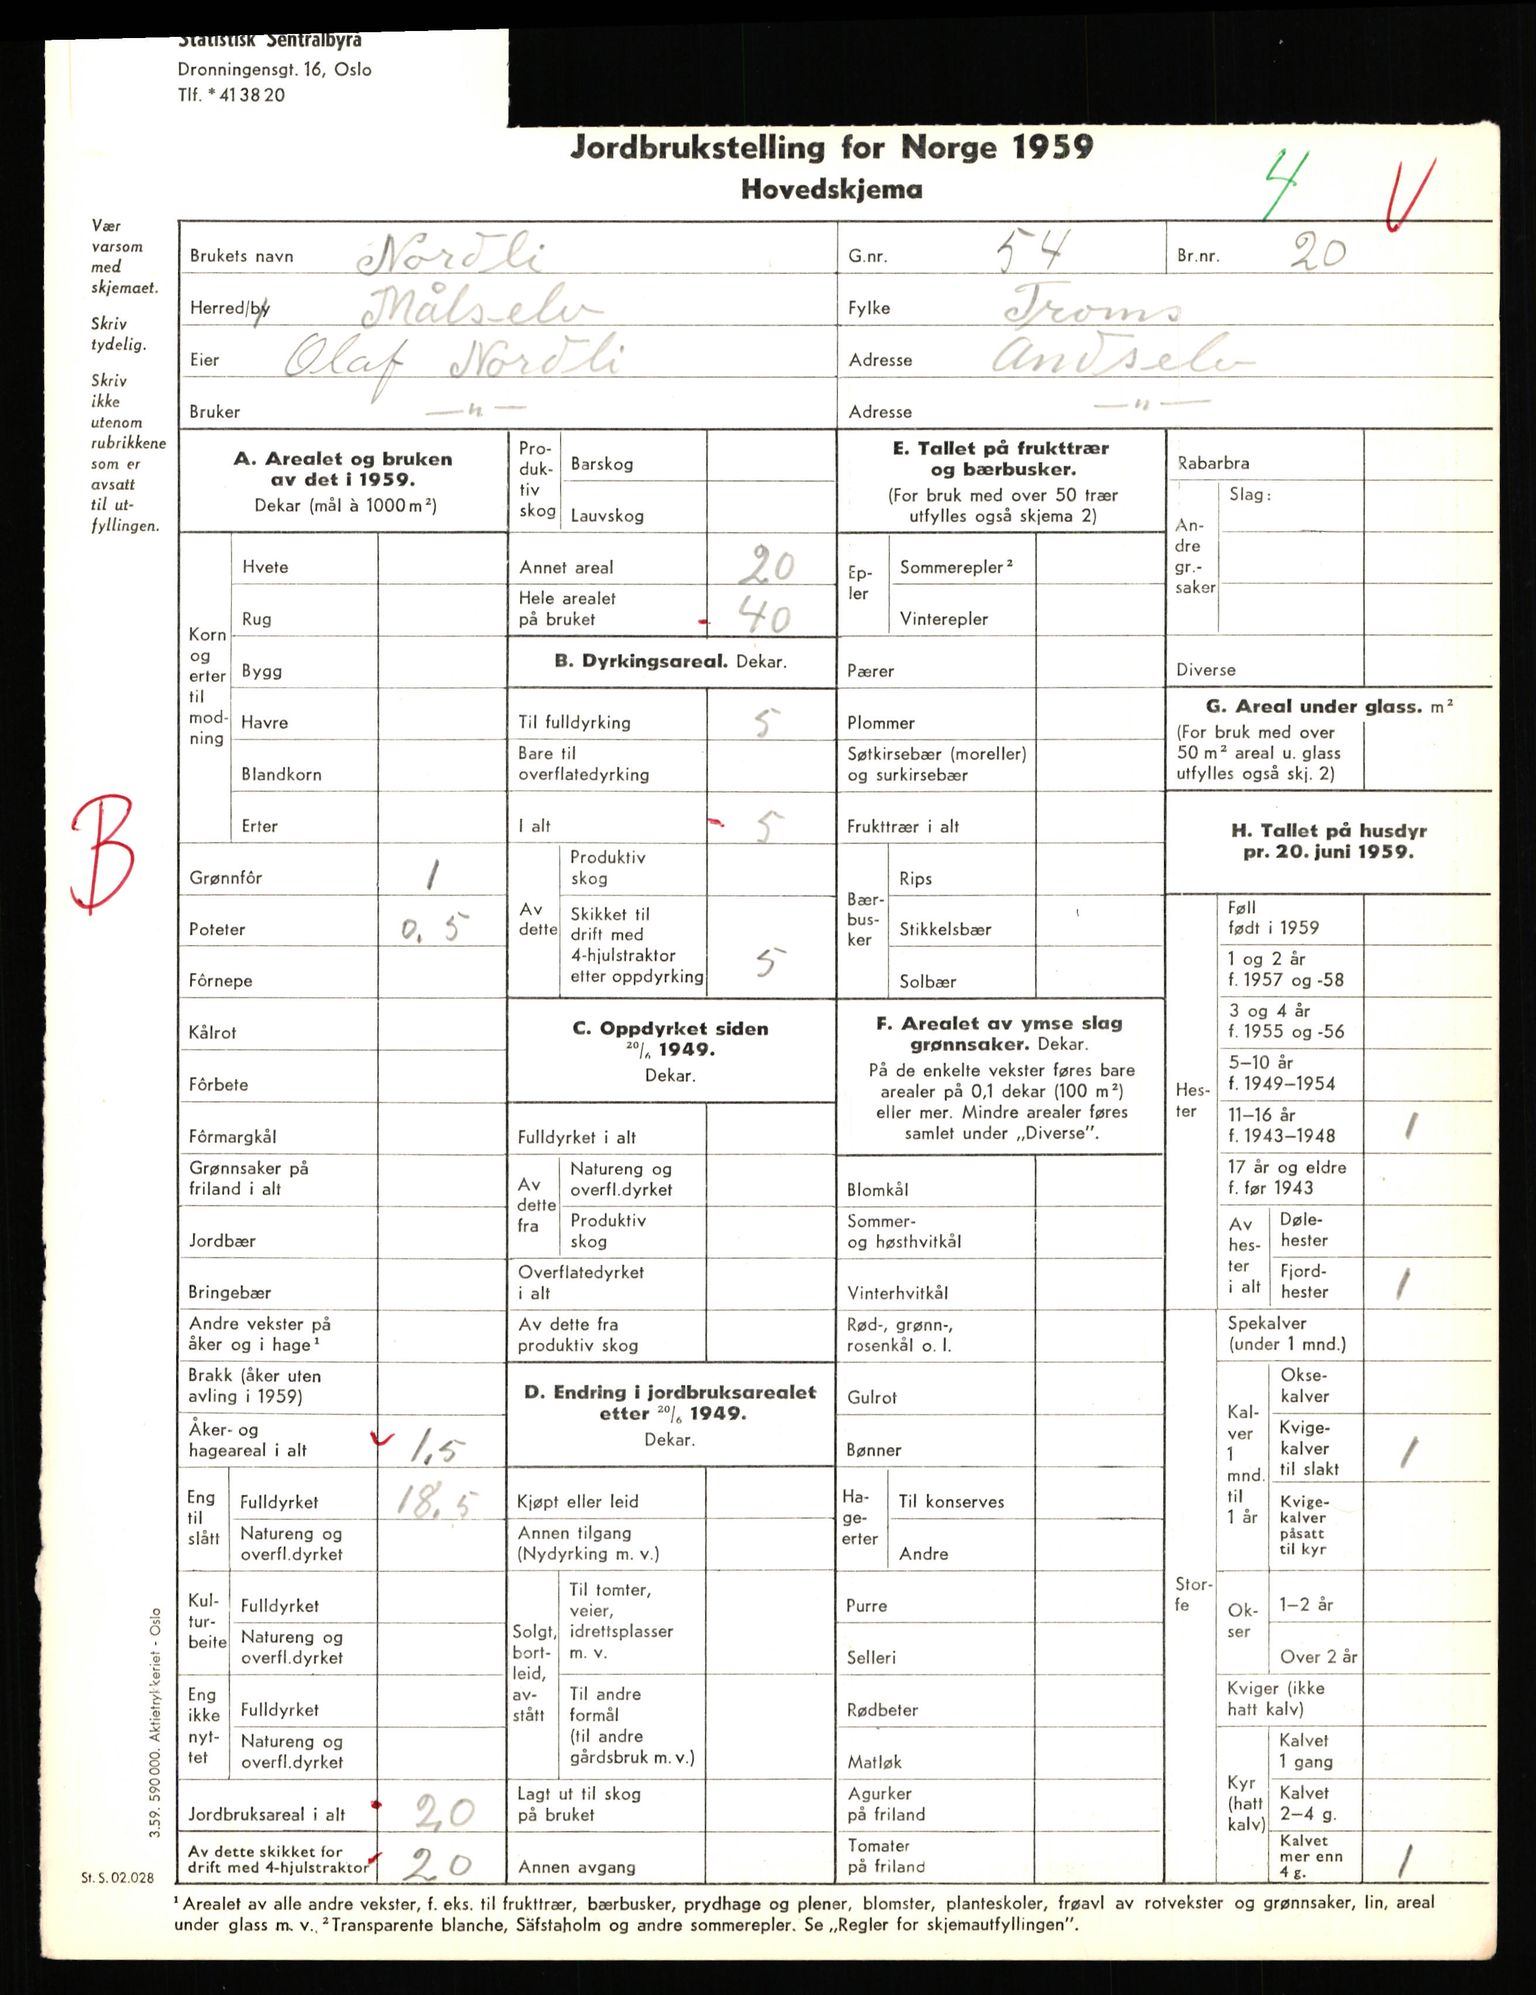 Statistisk Sentralbyrå
Dronningensgt. 16, Oslo
Tlf. * 41 38 20
Jordbrukstelling for Norge 1959
Hovedskjema
4
V
Vær
varsom
med
skjemaet.
Skriv
tydelig.
Skriv
ikke
utenom
rubrikkene
som er
avsatt
til ut-
fyllingen.
B
Brukets navn Nordli
G.nr. 54
Br.nr. 20
Herred/by Målselv
Fylke Troms
Eier Olaf Nordli
Adresse Andselv
Bruker — " —
Adresse — " —
A. Arealet og bruken
av det i 1959.
Dekar (mål à 1000 m²)
Korn
og
erter
til
mod-
ning
Hvete
Rug
Bygg
Havre
Blandkorn
Erter
Grønnfôr 1
Poteter 0.5
Fôrnepe
Kålrot
Fôrbete
Fôrmargkål
Grønnsaker på
friland i alt
Jordbær
Bringebær
Andre vekster på
åker og i hage¹
Brakk (åker uten
avling i 1959)
Åker- og
hageareal i alt 1,5
Eng
til
slått
Fulldyrket 18.5
Natureng og
overfl.dyrket
Kul-
tur-
beite
Fulldyrket
Natureng og
overfl.dyrket
Eng
ikke
nyt-
tet
Fulldyrket
Natureng og
overfl.dyrket
Jordbruksareal i alt 2,0
Av dette skikket for
drift med 4-hjulstraktor 20
Pro-
duk-
tiv
skog
Barskog
Lauvskog
Annet areal 20
Hele arealet
på bruket 40
B. Dyrkingsareal. Dekar.
Til fulldyrking 5
Bare til
overflatedyrking
I alt 5
Av
dette
Produktiv
skog
Skikket til
drift med
4-hjulstraktor
etter oppdyrking 5
C. Oppdyrket siden
20/6 1949.
Dekar.
Fulldyrket i alt
Av
dette
fra
Natureng og
overfl.dyrket
Produktiv
skog
Overflatedyrket
i alt
Av dette fra
produktiv skog
D. Endring i jordbruksarealet
etter 20/6 1949.
Dekar.
Kjøpt eller leid
Annen tilgang
(Nydyrking m. v.)
Solgt,
bort-
leid,
av-
stått
Til tomter,
veier,
idrettsplasser
m. v.
Til andre
formål
(til andre
gårdsbruk m. v.)
Lagt ut til skog
på bruket
Annen avgang
E. Tallet på frukttrær
og bærbusker.
(For bruk med over 50 trær
utfylles også skjema 2)
Ep-
ler
Sommerepler²
Vinterepler
Pærer
Plommer
Søtkirsebær (moreller)
og surkirsebær
Frukttrær i alt
Bær-
bus-
ker
Rips
Stikkelsbær
Solbær
F. Arealet av ymse slag
grønnsaker. Dekar.
På de enkelte vekster føres bare
arealer på 0,1 dekar (100 m²)
eller mer. Mindre arealer føres
samlet under „Diverse”.
Blomkål
Sommer-
og høsthvitkål
Vinterhvitkål
Rød-, grønn-,
rosenkål o. l.
Gulrot
Bønner
Ha-
ge-
erter
Til konserves
Andre
Purre
Selleri
Rødbeter
Matløk
Agurker
på friland
Tomater
på friland
Rabarbra
An-
dre
gr.-
saker
Slag:
Diverse
G. Areal under glass. m²
(For bruk med over
50 m² areal u. glass
utfylles også skj. 2)
H. Tallet på husdyr
pr. 20. juni 1959.
Hes-
ter
Føll
født i 1959
1 og 2 år
f. 1957 og -58
3 og 4 år
f. 1955 og -56
5–10 år
f. 1949–1954
11–16 år
f. 1943–1948 1
17 år og eldre
f. før 1943
Av
hes-
ter
i alt
Døle-
hester
Fjord-
hester 1
Stor-
fe
Spekalver
(under 1 mnd.)
Kal-
ver
1
mnd.
til
1 år
Okse-
kalver
Kvige-
kalver
til slakt 1
Kvige-
kalver
påsatt
til kyr
Ok-
ser
1–2 år
Over 2 år
Kviger (ikke
hatt kalv)
Kyr
(hatt
kalv)
Kalvet
1 gang
Kalvet
2–4 g.
Kalvet
mer enn
4 g. 1
3.59. 590 000. Aktietrykkeriet - Oslo
St. S. 02.028
¹ Arealet av alle andre vekster, f. eks. til frukttrær, bærbusker, prydhage og plener, blomster, planteskoler, frøavl av rotvekster og grønnsaker, lin, areal
under glass m. v. ² Transparente blanche, Säfstaholm og andre sommerepler. Se „Regler for skjemautfyllingen”.